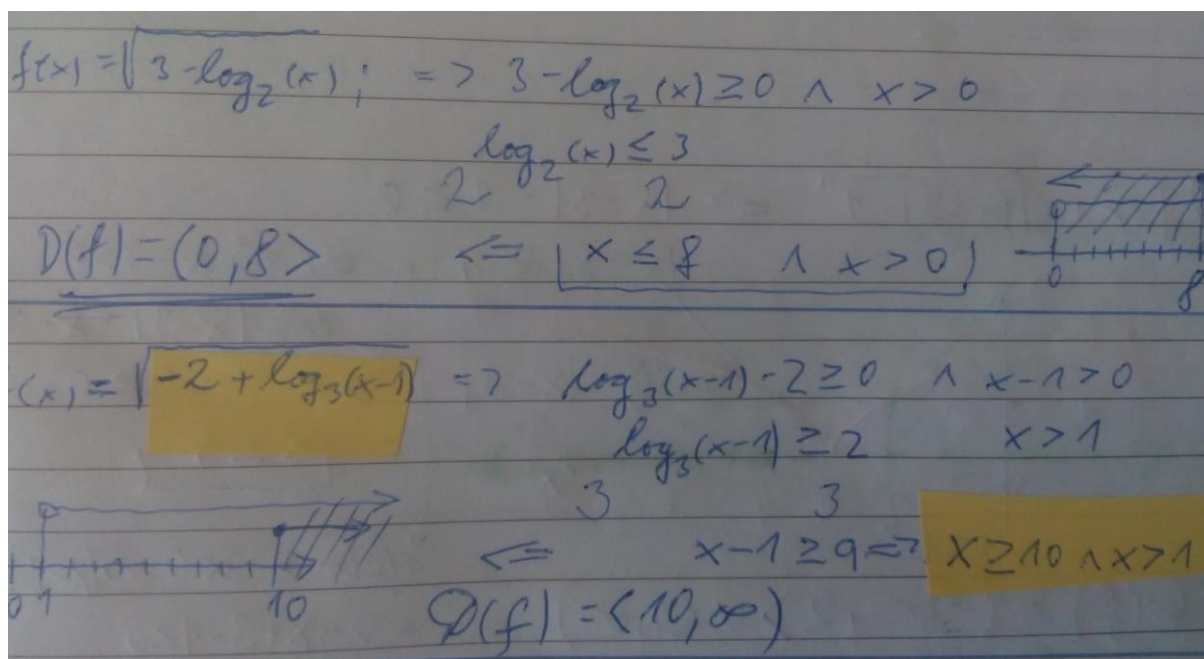 f(x) = √3 - log₂(x) ; => 3 - log₂(x) ≥ 0 ∧ x > 0
log₂(x) ≤ 3
2 2
D(f) = (0, 8> <= x ≤ 8 ∧ x > 0
0 8
(x) = √-2 + log₃(x-1) => log₃(x-1) - 2 ≥ 0 ∧ x-1 > 0
log₃(x-1) ≥ 2 x > 1
3 3
<= x-1 ≥ 9 => x ≥ 10 ∧ x > 1
0 1 10
D(f) = <10, ∞)